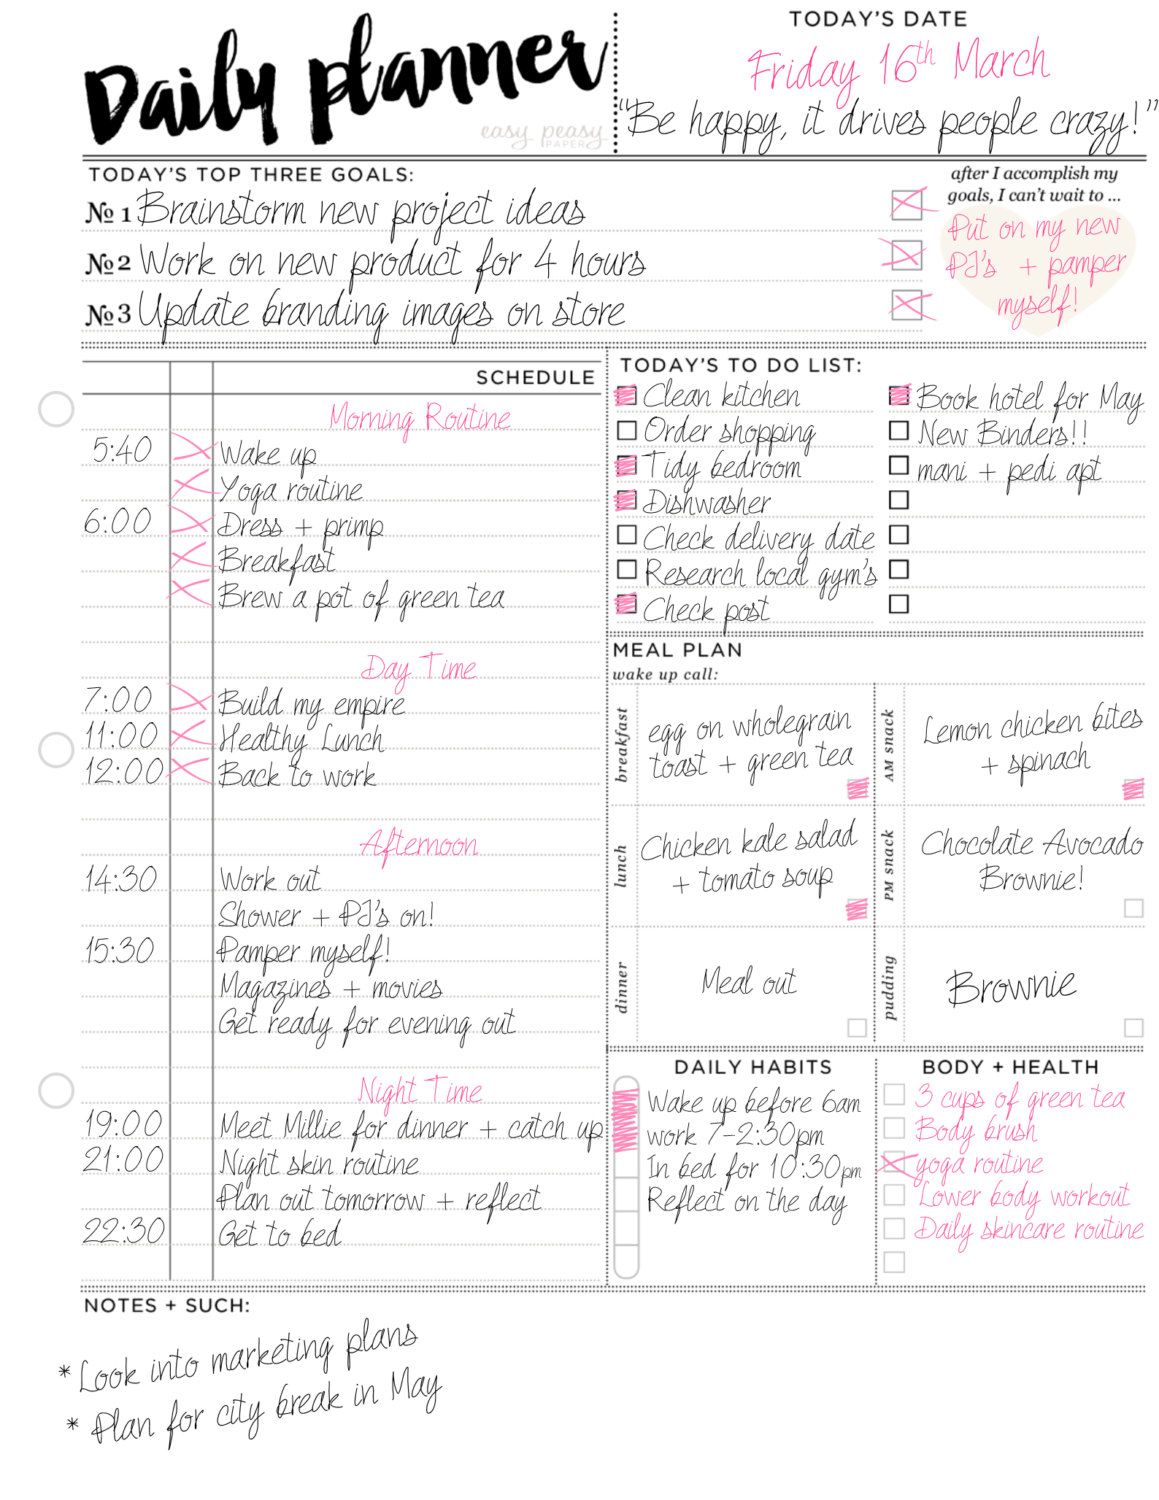 Daily planner
easy peasy
PAPER
TODAY'S DATE
Friday 16th March
"Be happy, it drives people crazy!"
TODAY'S TOP THREE GOALS:
№ 1 Brainstorm new project ideas
№ 2 Work on new product for 4 hours
№ 3 Update branding images on store
after I accomplish my
goals, I can't wait to ...
Put on my new
PJ's + pamper
myself!
SCHEDULE
Morning Routine
5:40 Wake up
Yoga routine
6:00 Dress + primp
Breakfast
Brew a pot of green tea
Day Time
7:00 Build my empire
11:00 Healthy Lunch
12:00 Back to work
Afternoon
14:30 Work out
Shower + PJ's on!
15:30 Pamper myself!
Magazines + movies
Get ready for evening out
Night Time
19:00 Meet Millie for dinner + catch up
21:00 Night skin routine
Plan out tomorrow + reflect
22:30 Get to bed
TODAY'S TO DO LIST:
Clean kitchen
Order shopping
Tidy bedroom
Dishwasher
Check delivery date
Research local gym's
Check post
Book hotel for May
New Binders!!
mani + pedi apt
MEAL PLAN
wake up call:
breakfast
egg on wholegrain
toast + green tea
AM snack
Lemon chicken bites
+ spinach
lunch
Chicken kale salad
+ tomato soup
PM snack
Chocolate Avocado
Brownie!
dinner
Meal out
pudding
Brownie
DAILY HABITS
Wake up before 6am
work 7-2:30pm
In bed for 10:30pm
Reflect on the day
BODY + HEALTH
3 cups of green tea
Body brush
yoga routine
Lower body workout
Daily skincare routine
NOTES + SUCH:
* Look into marketing plans
* Plan for city break in May